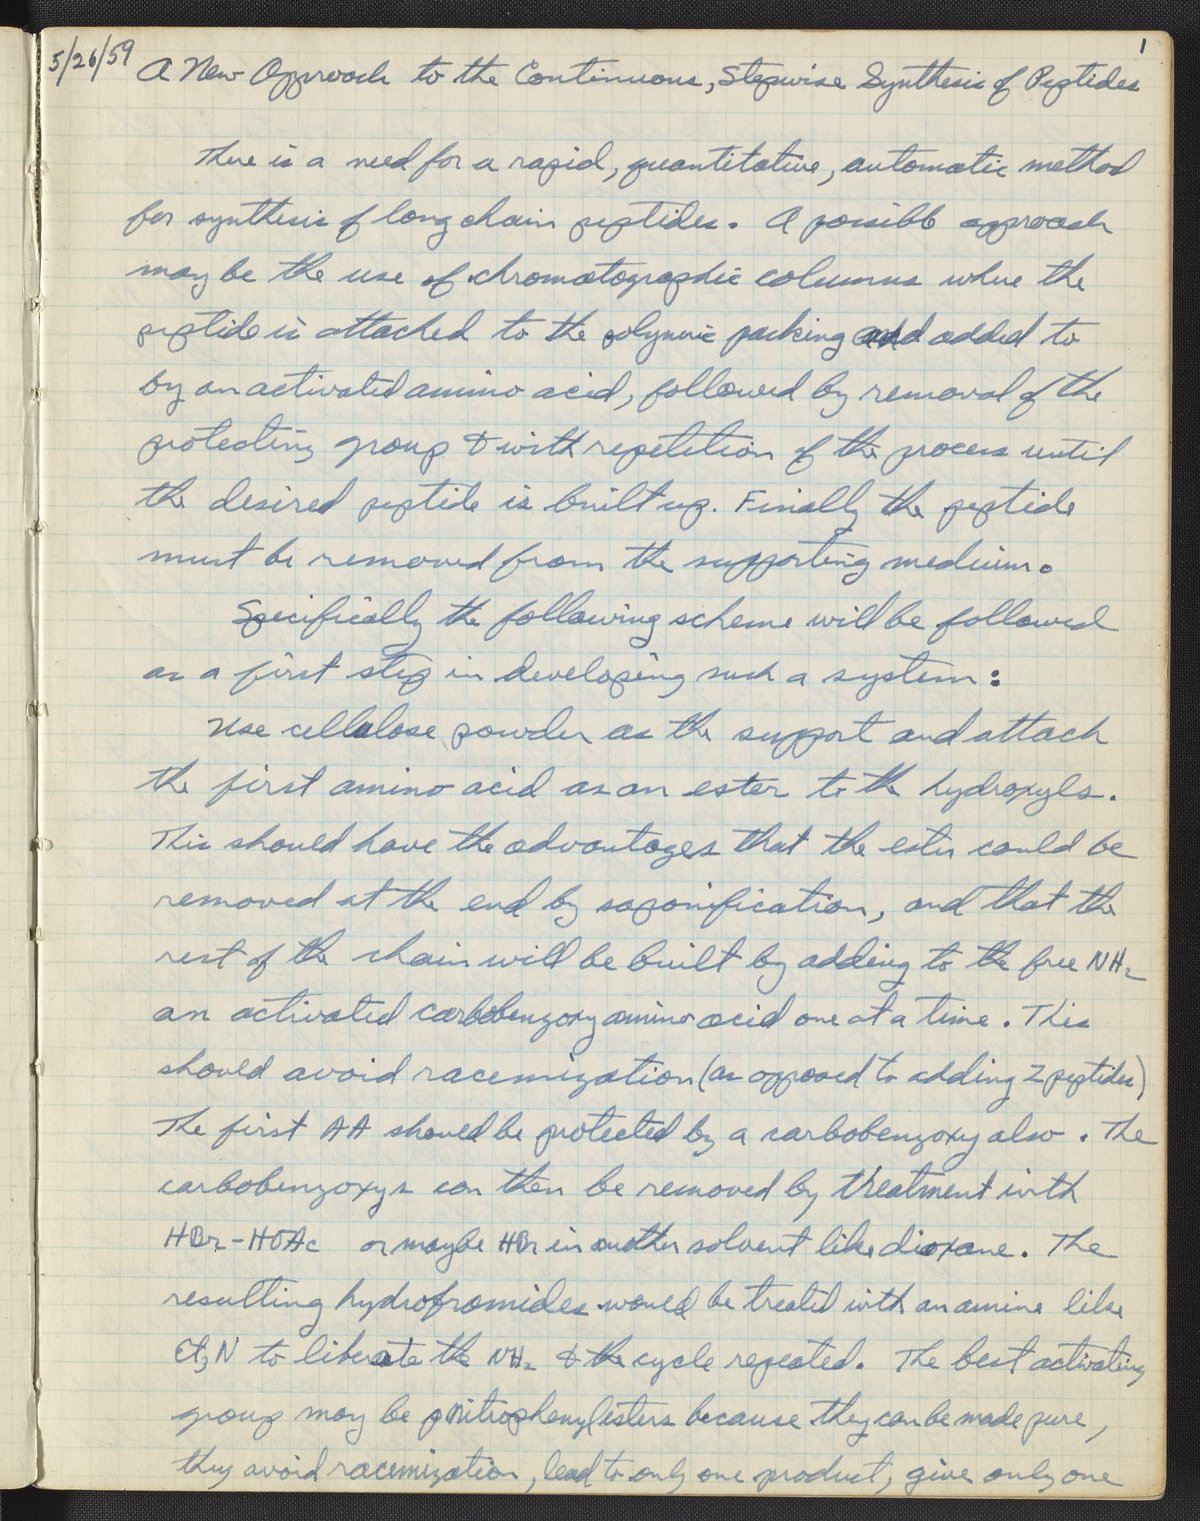 1
5/26/59 A New Approach to the Continuous, Stepwise Synthesis of Peptides
There is a need for a rapid, quantitative, automatic method
for synthesis of long chain peptides. A possible approach
may be the use of chromatographic columns where the
peptide is attached to the polymeric packing and added to
by an activated amino acid, followed by removal of the
protecting group & with repetition of the process until
the desired peptide is built up. Finally the peptide
must be removed from the supporting medium.
Specifically the following scheme will be followed
as a first step in developing such a system:
Use cellulose powder as the support and attach
the first amino acid as an ester to the hydroxyls.
This should have the advantages that the ester could be
removed at the end by saponification, and that the
rest of the chain will be built by adding to the free NH₂
an activated carbobenzoxy amino acid one at a time. This
should avoid racemization (as opposed to adding 2 peptides)
The first AA should be protected by a carbobenzoxy also. The
carbobenzoxys can then be removed by treatment with
HBr-HOAc or maybe HBr in another solvent like dioxane. The
resulting hydrobromides would be treated with an amine like
Et₃N to liberate the NH₂ & the cycle repeated. The best activating
group may be p nitrophenyl esters because they can be made pure,
they avoid racemization, lead to only one product, give only one